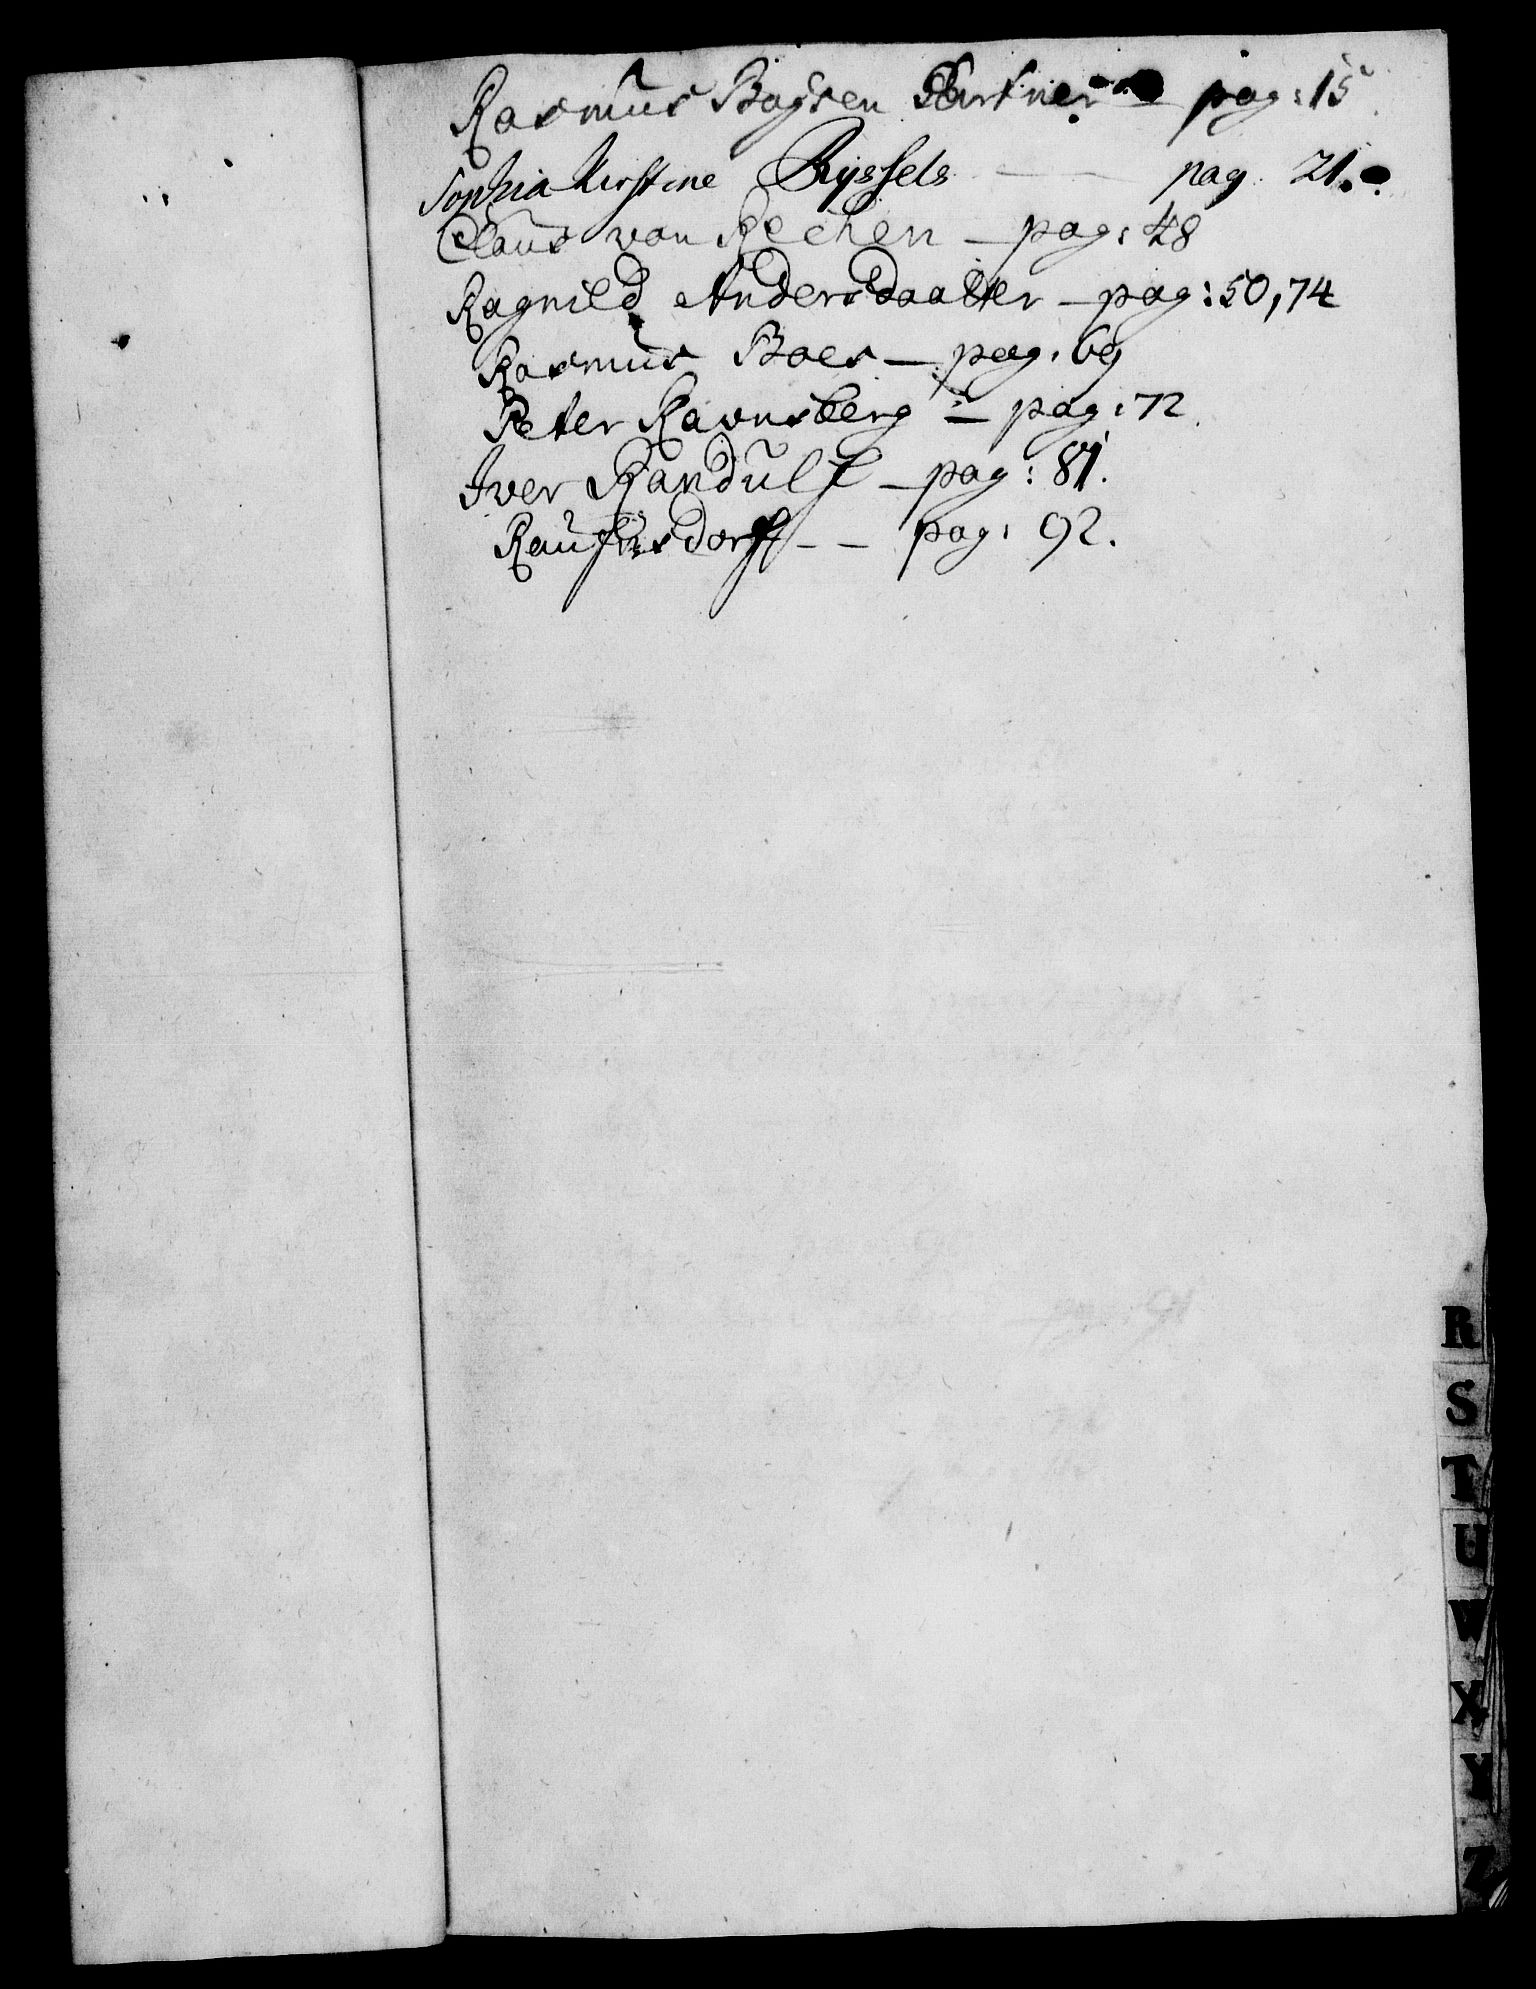 Rasmus Boysen Birkner — pag: 15
Sophia Kirstine Ryssels — pag. 21.
Claus von Rechen — pag: 48
Ragnild Andersdaatter — pag: 50, 74
Rasmus Boes — pag. 69
Peter Ravnsberg — pag: 72
Iver Randulf — pag: 81.
pag: 92.
R
S
T
U
W
X
Y
Z